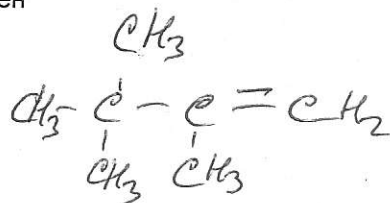 ен
CH3
CH3 - C - C = CH2
CH3 CH3